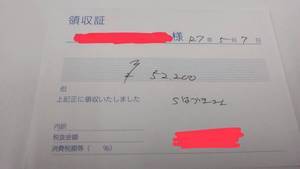 領収証
様 27年 5月 7日
¥ 52200
但
上記正に領収いたしました
内訳
税抜金額
消費税額等（　％）